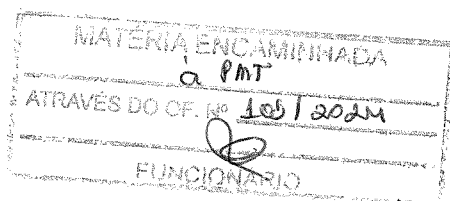 MATÉRIA ENCAMINHADA
à PMT
ATRAVÉS DO OF. Nº 109/2024
FUNCIONÁRIO